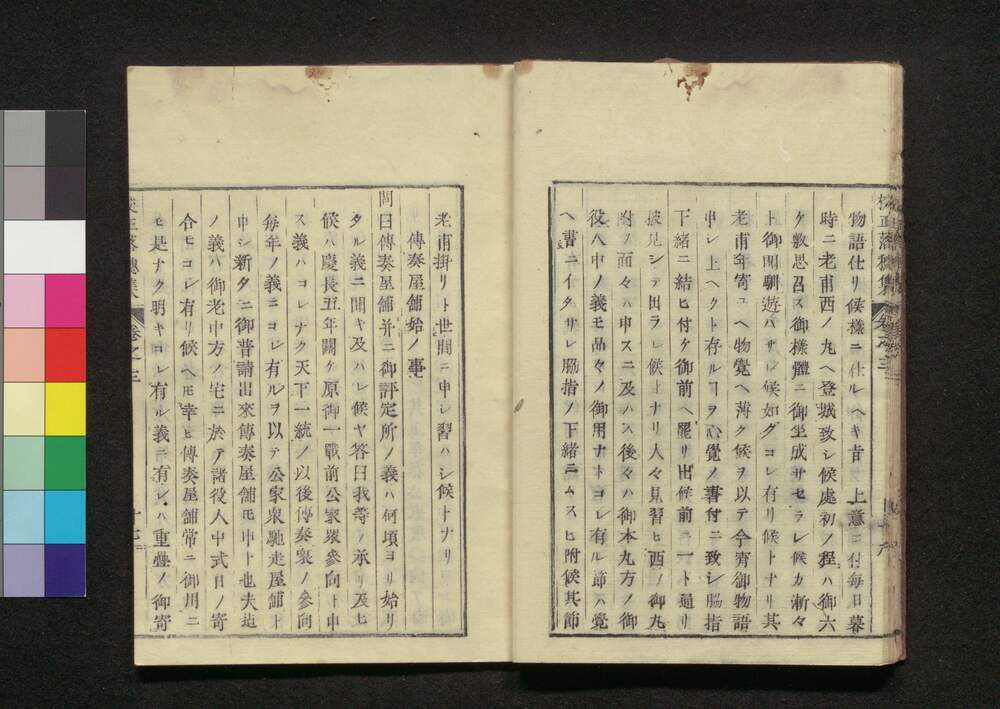 物語仕リ候樣ニ仕ルヘキ旨 上意ニ付每日暮
時ニ老甫西ノ丸ヘ登城致シ候處初ノ程ハ御六
ケ敷思召ス御樣體ニ御坐成サセラレ候カ漸々
ト御聞馴遊ハサレ候如グコレ有リ候トナリ其
老甫年寄ユヘ物覺ヘ薄ク候ヲ以テ今宵御物語
申シ上ヘクト存ルヿヲ心覺ノ書付ニ致シ脇指
下緒ニ結ヒ付ケ御前ヘ罷リ出候前ニ一ト通リ
披見シテ田ラレ候トナリ人々見習ヒ西ノ御丸
附ノ面々ハ申スニ及ハス後々ハ御本丸方ノ御
役人中ノ義モ品々ノ御用ナトコレ有ル節ハ覺
ヘ書ニイタサレ脇指ノ下緒ニムスヒ附候其節
校正落穗集 卷之三
老甫掛リト世間ニ申シ習ハシ候トナリ
傳奏屋舖始ノ事
問曰傳奏屋舖并ニ御評定所ノ義ハ何頃ヨリ始リ
タル義ニ聞キ及ハレ候ヤ答曰我等ノ承リ及ヒ
候ハ慶長五年關ケ原御一戰前公家衆參向ト中
ス義ハコレナク天下一統ノ以後傳奏衆ノ參向
每年ノ義ニコレ有ルヲ以テ公家衆馳走屋舖ト
申シ新タニ御普請出來傳奏屋舖モ申ト也夫迠
ノ義ハ御老中方ノ宅ニ於テ諸役人中式日ノ寄
合ヒコレ有リ候ヘモ幸ヒ傳奏屋舖常ニ御用ニ
モ是ナク明キコレ有ル義ニ有レハ重疊ノ御寄